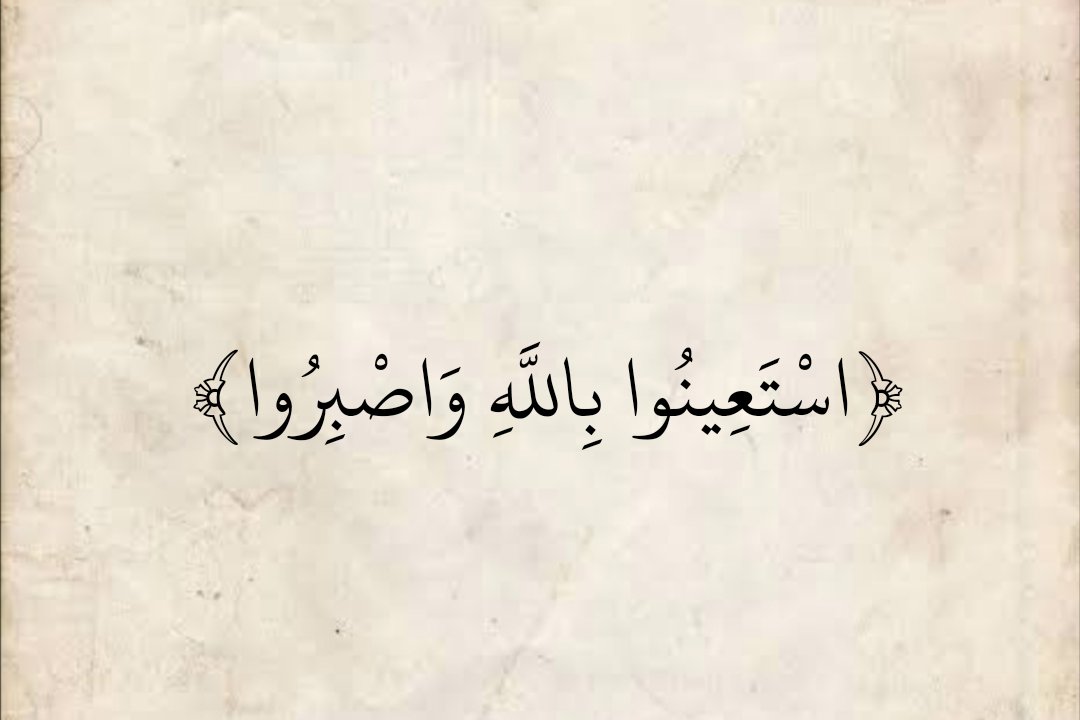 ﴿اسْتَعِينُوا بِاللَّهِ وَاصْبِرُوا﴾